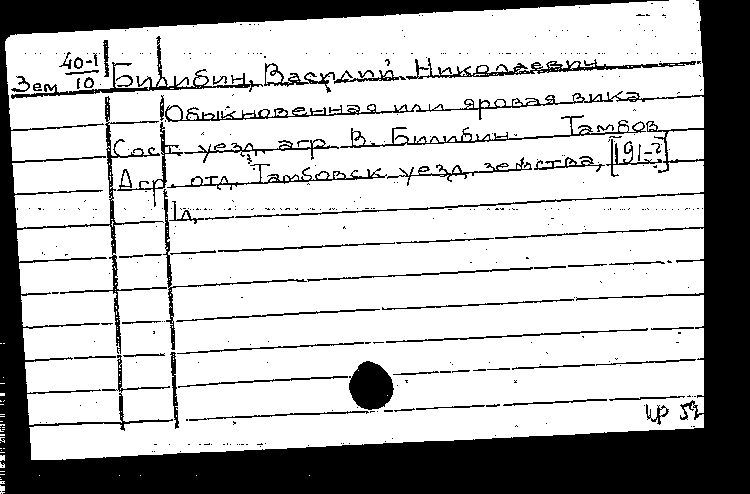 40-1
Зем 10 Билибин, Василий Николаевич.
Обыкновенная или яровая вика.
Сост. уезд. агр. В. Билибин. Тамбов,
Агр. отд. Тамбовск. уезд. земства, [191-?].
1л.
кр 59